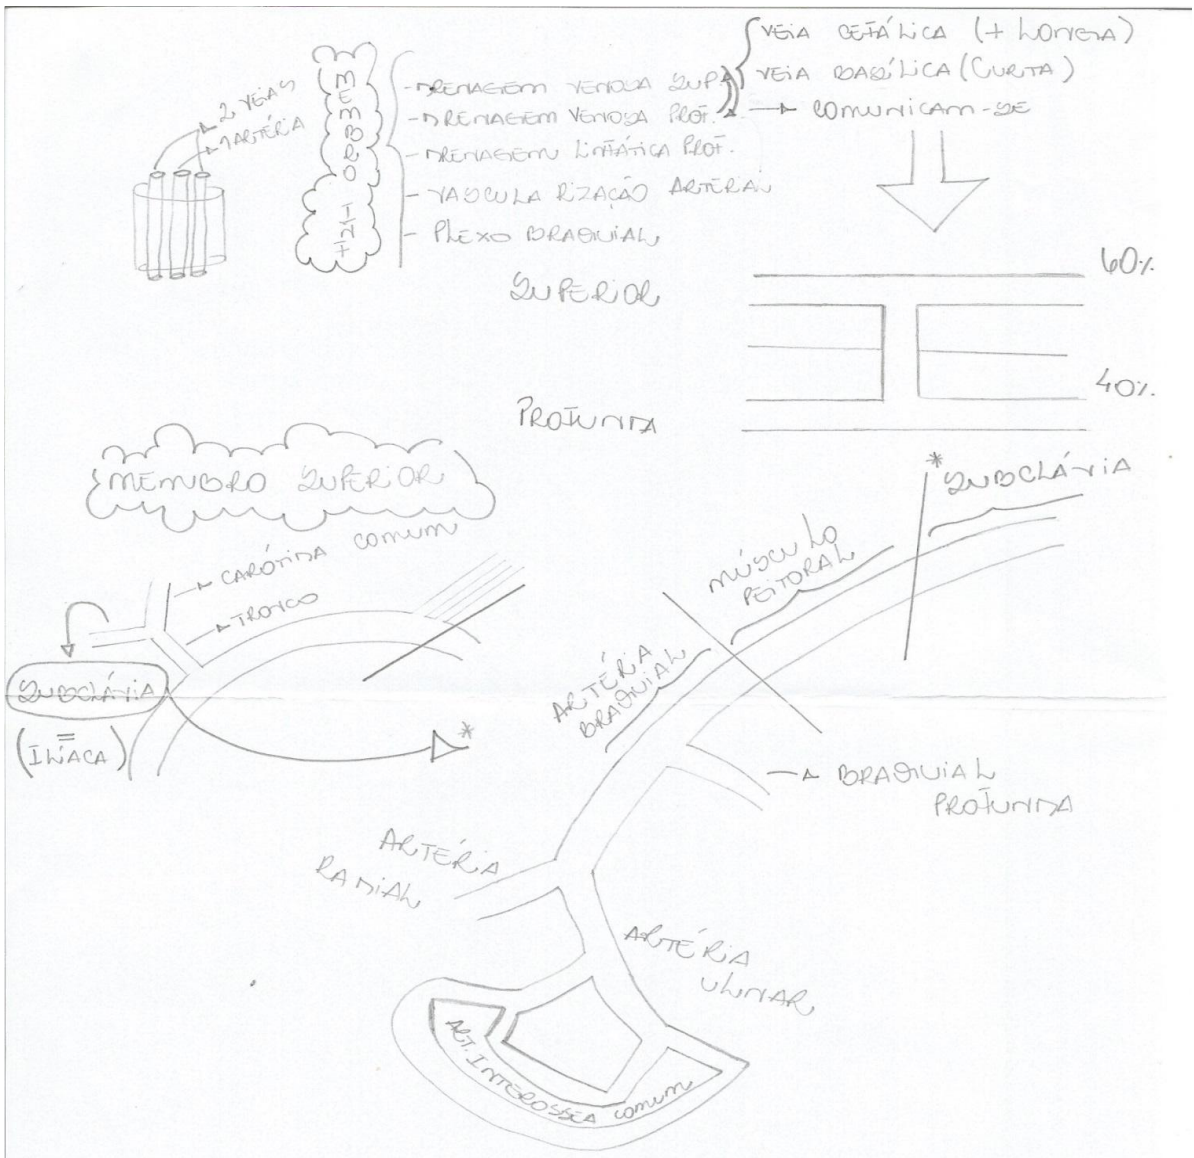 2 VEIAS
1 ARTÉRIA
MEMBRO
- DRENAGEM VENOSA SUP.
- DRENAGEM VENOSA PROF.
- DRENAGEM LINFÁTICA PROF.
- VASCULARIZAÇÃO ARTERIAL
- PLEXO BRAQUIAL
VEIA CEFÁLICA (+ LONGA)
VEIA BASÍLICA (CURTA)
COMUNICAM-SE
SUPERIOR
60%
40%
PROFUNDA
MEMBRO SUPERIOR
CARÓTIDA COMUM
TRONCO
SUBCLÁVIA
=
(ILÍACA)
*
* SUBCLÁVIA
MÚSCULO
PEITORAL
ARTÉRIA
BRAQUIAL
BRAQUIAL
PROFUNDA
ARTÉRIA
RADIAL
ARTÉRIA
ULNAR
ART. INTEROSSEA COMUM